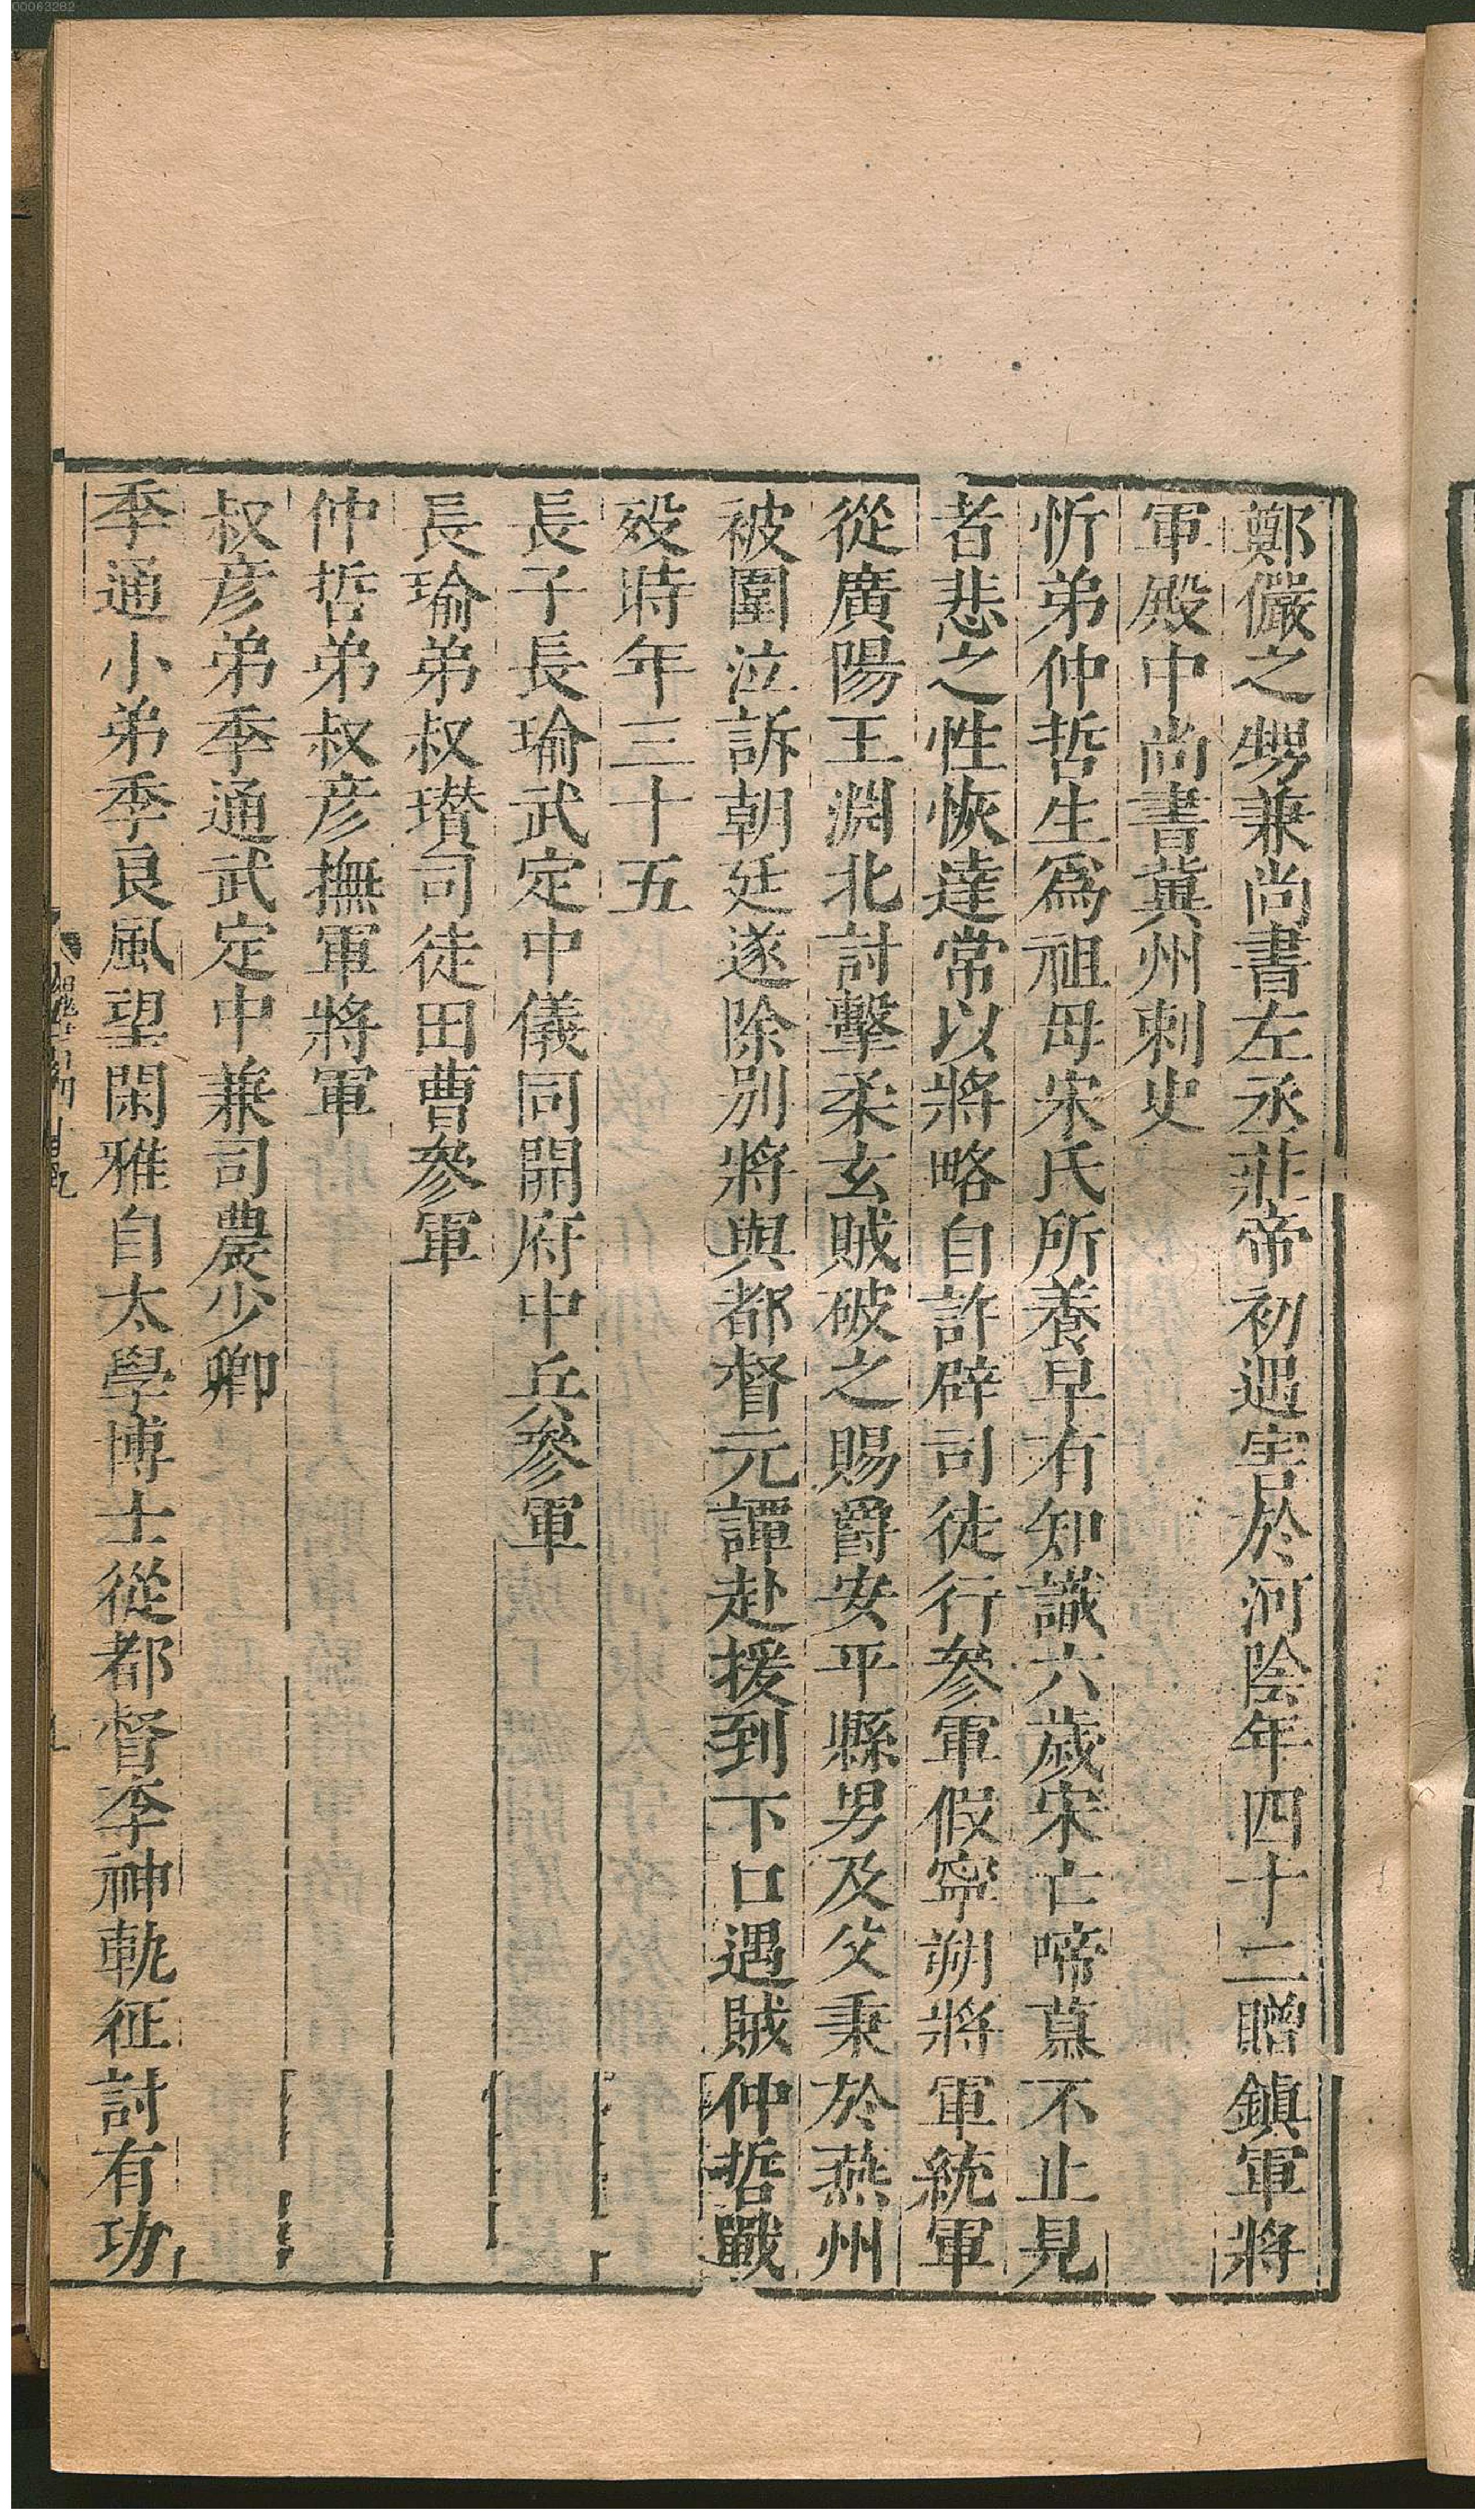 00063282
鄭儼之甥兼尚書左丞莊帝初遇害於河陰年四十二贈鎮軍將
軍殿中尚書冀州刺史
忻弟仲哲生爲祖母宋氏所養早有知識六歲宋亡啼慕不止見
者悲之性恢達常以將略自許辟司徒行參軍假寧朔將軍統軍
從廣陽王淵北討擊柔玄賊破之賜爵安平縣男及父秉於燕州
被圍泣訴朝廷遂除別將與都督元譚赴援到下口遇賊仲哲戰
歿時年三十五
長子長瑜武定中儀同開府中兵參軍
長瑜弟叔瓚司徒田曹參軍
仲哲弟叔彥撫軍將軍
叔彥弟季通武定中兼司農少卿
季通小弟季良風望閑雅自太學博士從都督李神軌征討有功